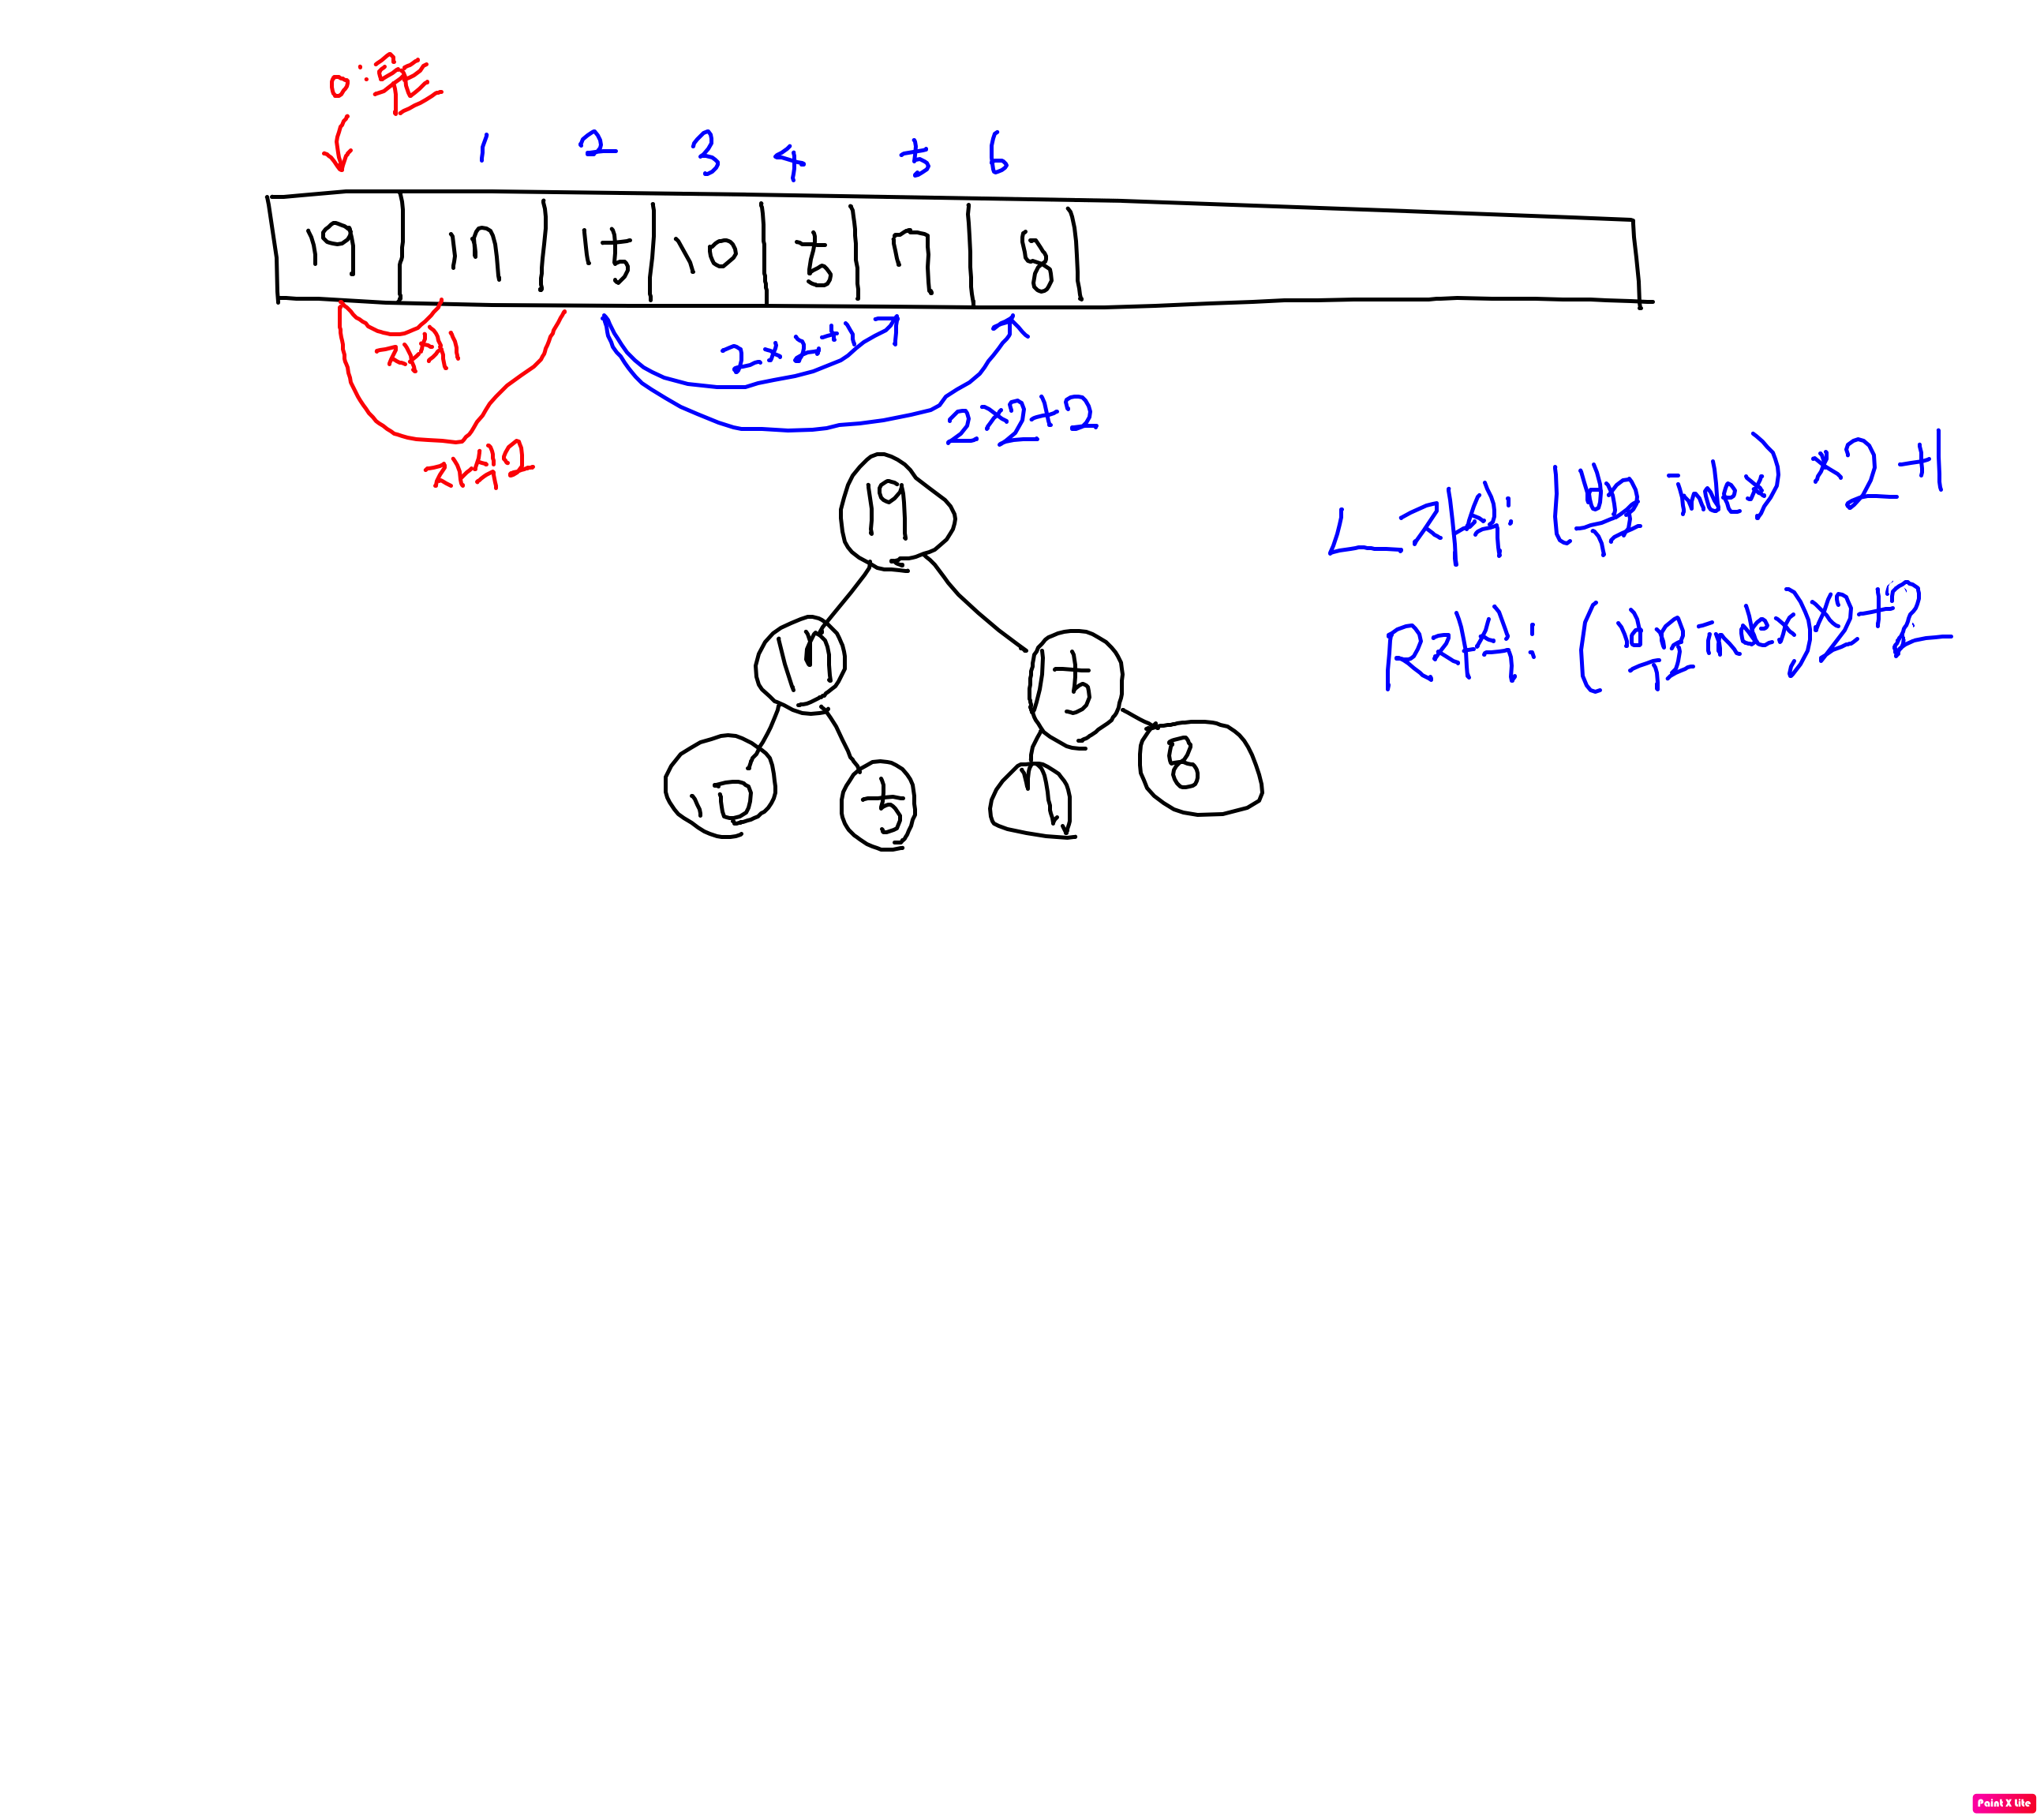 0:루트
1 2 3 4 5 6
19 17 15 10 5 7 8
자식1
2×2+1
자식2
2×2+2
19
17 15
10 5 7 8
L-자식: (부모-index)×2+1
R-자식: (부모-index)×2+2
Paint X Lite